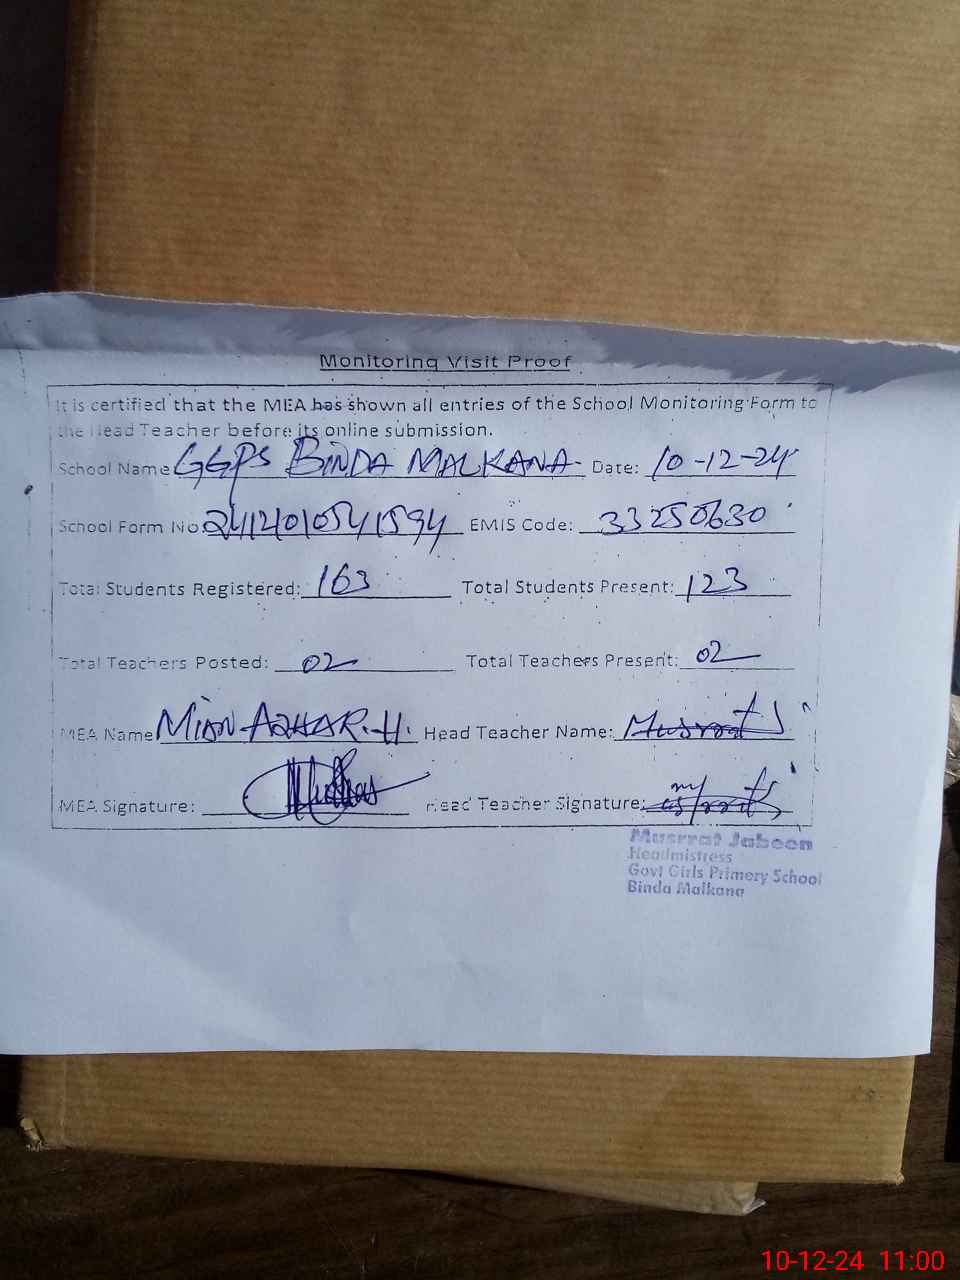 Monitoring Visit Proof
It is certified that the MEA has shown all entries of the School Monitoring Form to
the Head Teacher before its online submission.
School Name GGPS BINDA MALKANA Date: 10-12-24
School Form No 2412010541594 EMIS Code: 33250630
Total Students Registered: 163 Total Students Present: 123
Total Teachers Posted: 02 Total Teachers Present: 02
MEA Name MIAN AZHAR.H. Head Teacher Name: Musrrat J
MEA Signature: Head Teacher Signature:
Musrrat Jabeen
Headmistress
Govt Girls Primery School
Binda Malkana
10-12-24 11:00